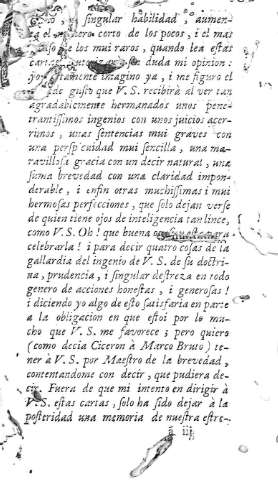 gusto, i singular habilidad, aumen-
ta el numero corto de los pocos, i el mas
de los mui raros, quando lea estas
cartas duda mi opinion:
imagino ya, i me figuro el
de gusto que V. S. recibirà al ver tan
agradablemente hermanados unos pene-
trantissimos ingenios con unos juicios acer-
rimos, unas sentencias mui graves con
una perspicuidad mui sencilla, una ma-
ravillosa gracia con un decir natural, una
suma brevedad con una claridad impon-
derable, i enfin otras muchissimas i mui
hermosas perfecciones, que solo dejan verse
de quien tiene ojos de inteligencia tan lince,
como V. S. Oh! que buena
celebrarla! i para decir quatro cosas de la
gallardia del ingenio de V. S. de su doctri-
na, prudencia, i singular destreza en todo
genero de acciones honestas, i generosas!
i diciendo yo algo de esto satisfaria en parte
a la obligacion en que estoi por lo mu-
cho que V. S. me favorece; pero quiero
(como decia Ciceron à Marco Bruto) te-
ner à V. S. por Maestro de la brevedad,
contentandome con decir, que pudiera de-
cir. Fuera de que mi intento en dirigir à
V. S. estas cartas, solo ha sido dejar à la
posteridad una memoria de nuestra estre-